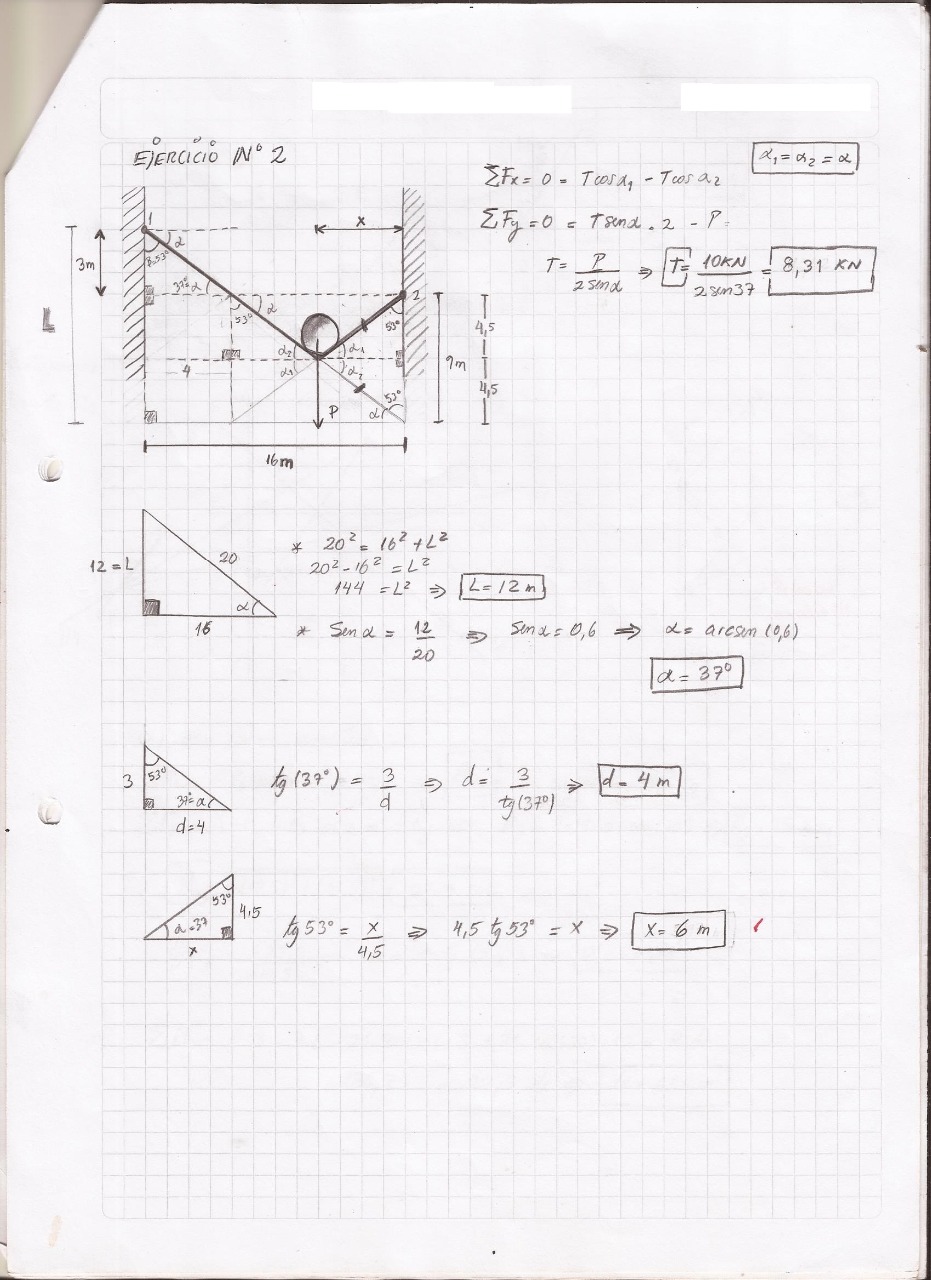 EJERCICIO Nº 2
α₁ = α₂ = α
ΣFx = 0 = T cos α₁ - T cos α₂
ΣFy = 0 = T sen α . 2 - P =
T = P / 2 sen α ⇒ T = 10KN / 2 sen 37 = 8,31 KN
1
α
x
3m
β=53°
37°=α
α
2
L
53°
53°
4,5
α₂
α₁
9m
4
α₁
α₂
4,5
53°
P
α
16m
12 = L
20
α
16
* 20² = 16² + L²
20² - 16² = L²
144 = L² ⇒ L = 12 m
* Sen α = 12 / 20 ⇒ Sen α = 0,6 ⇒ α = arcsen (0,6)
α = 37°
3
53°
37°=α
d=4
tg (37°) = 3 / d ⇒ d = 3 / tg (37°) ⇒ d = 4 m
53°
4,5
α=37
x
tg 53° = x / 4,5 ⇒ 4,5 tg 53° = x ⇒ x = 6 m